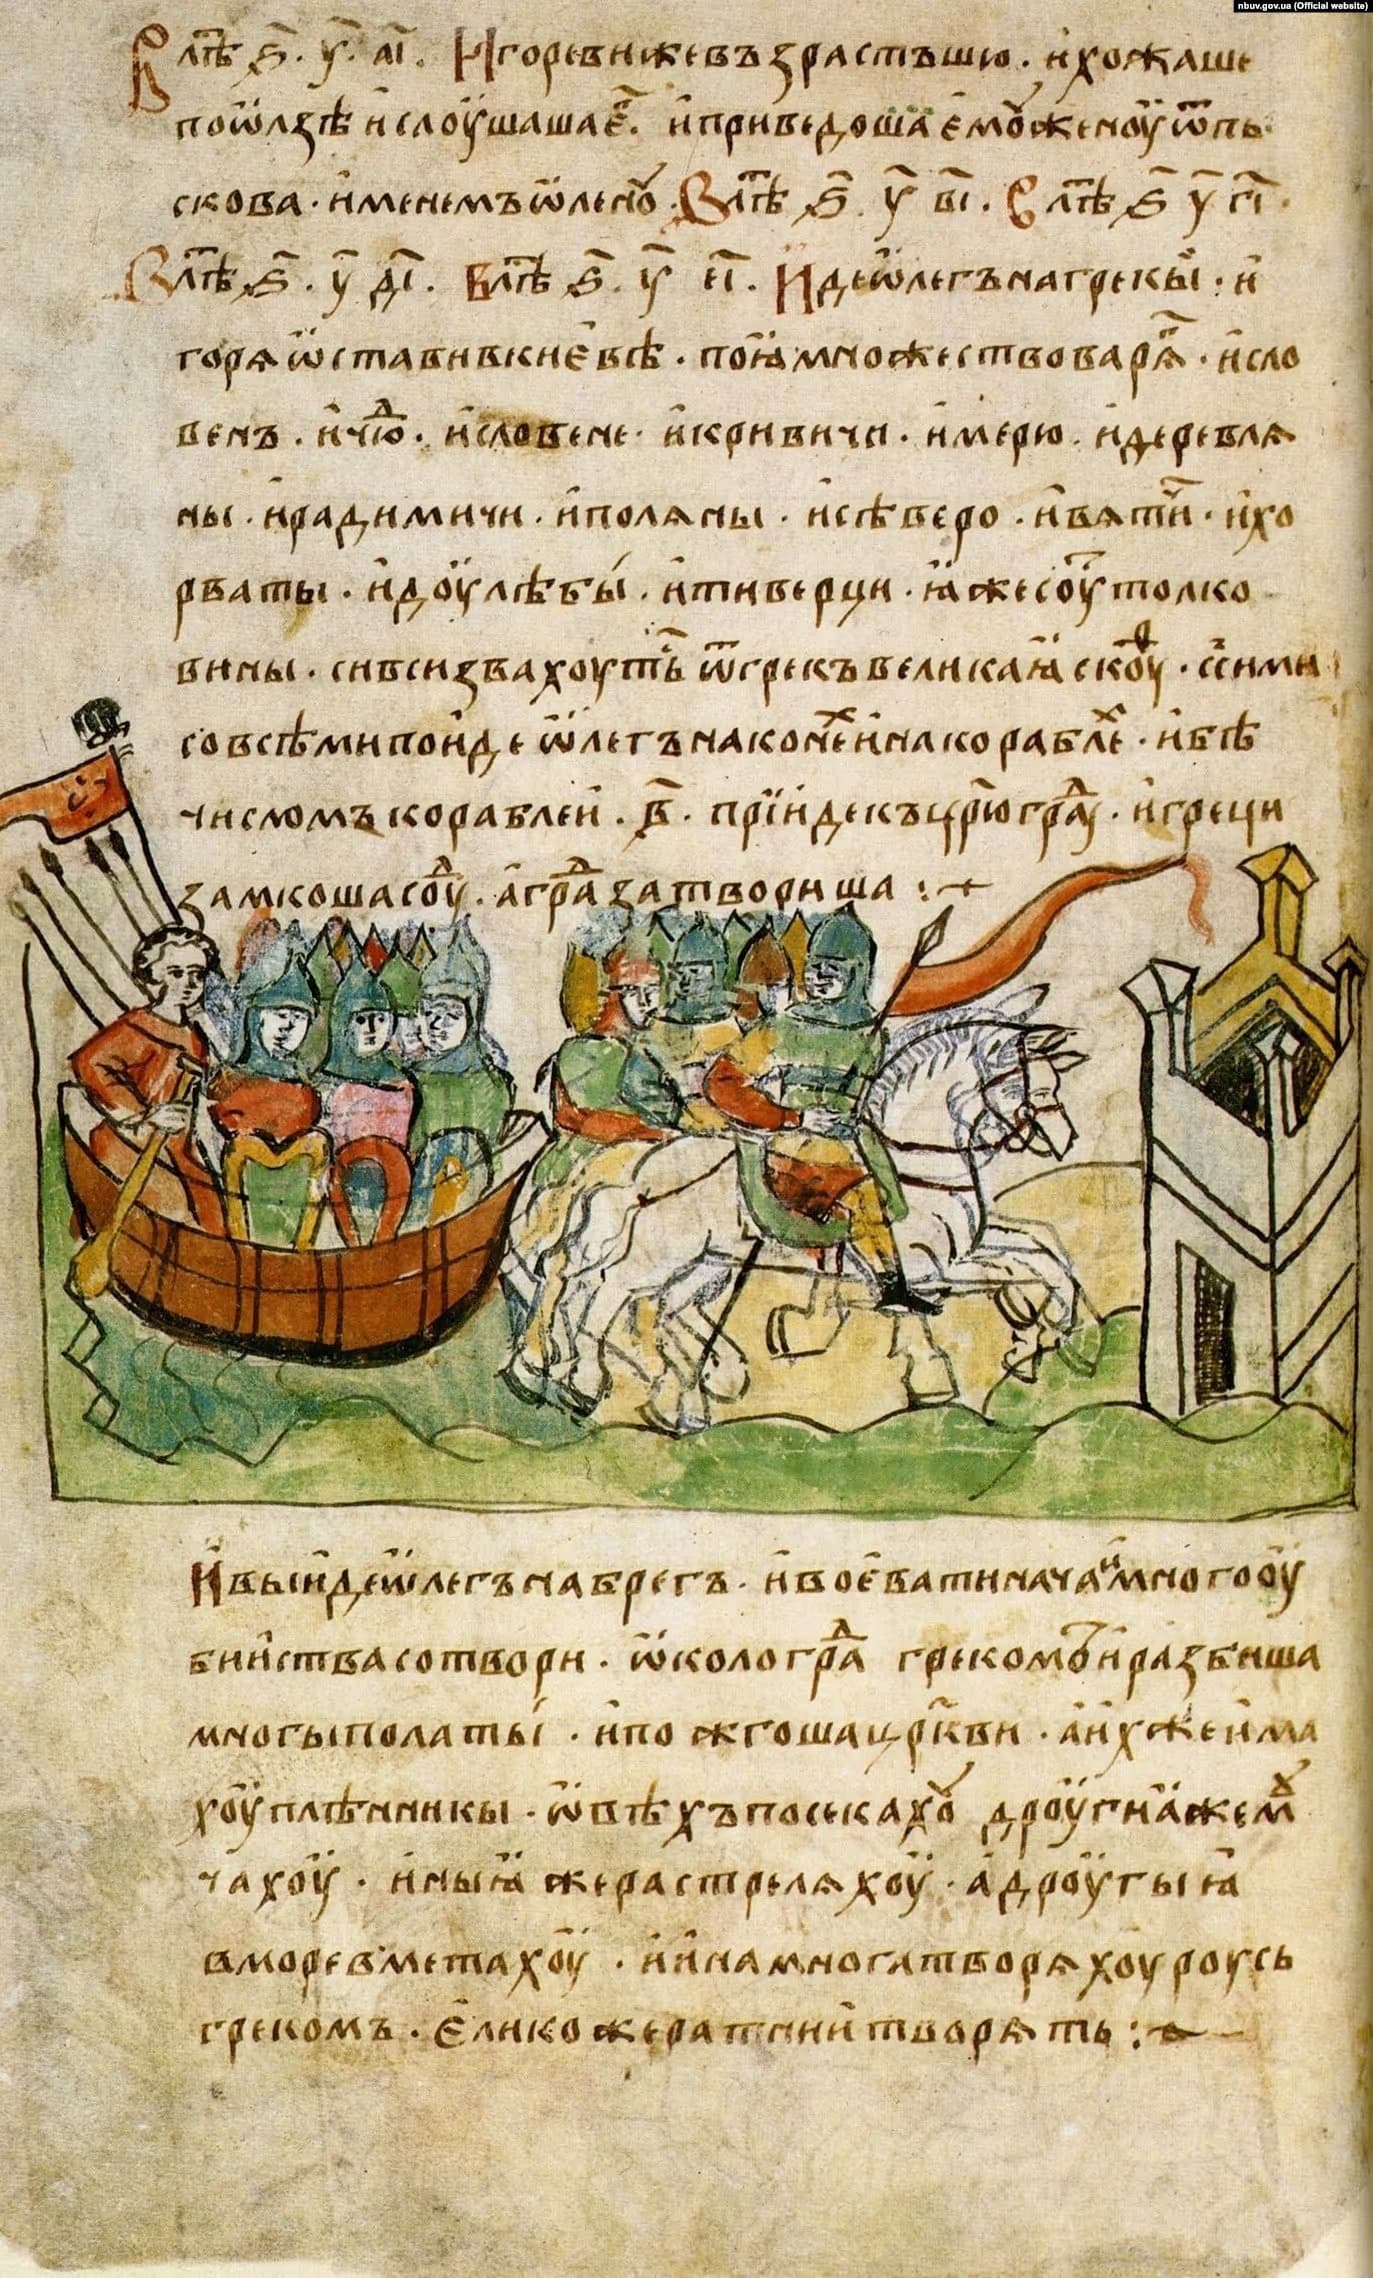 nbuv.gov.ua (Official website)
В лѣⷮ ѕ҃ · у҃ · аі҃ · Игоревижевъзрастъшю · ихожаше
поѡлзѣ ислоушашаеⷢ҇ · иприведошаемоуженоуѿпь
скова · именемъѡленоу · Влⷮѣ ѕ҃ · у҃ ві҃ · Влⷮѣ ѕ҃ у҃ гі҃ ·
Влⷮѣ ѕ҃ · у҃ ді҃ · Влⷮѣ ѕ҃ · у҃ еі҃ · Идеѡлегънагрекы · и
горяѡставивкиевѣ · поꙗмножествоварѧⷢ҇ · исло
венъ · ичюⷣ · исловене · икривичи · имерю · идеревлѧ
ны · ирадимичи · иполѧны · исѣверо · ивѧтⷱ҇и · ихо
рваты · идоулѣбы · итиверци · ꙗжесоутолко
вины · сивсизвахоутⷭ҇ь ѿгрекъвеликаꙗскоуⷴ · ссⷤими
совсѣмипоидеѡлегънаконеⷯинакораблеⷯ · ибѣ
числомъкораблеи · в҃ · прїидекъцр҃юграⷣу · игреци
замкошасоуⷣ · аграⷣзатвориша :·
Ивыидеѡлегънабрегъ · ивоеватиначаⷩмногооу
биистасотвори · ѡколограⷣ грекомъиразбиша
многыполаты · ипожгошацр҃кви · аихжеима
хоуплѣнникы · ѡвѣхъпосекахоу дроугиꙗжемоуⷱ
чахоу · иныꙗжерастрелѧхоу · адроугыꙗ
вморевметахоу · иинамногатворѧхоуроусь
грекомъ · еликожератниитворѧть :·